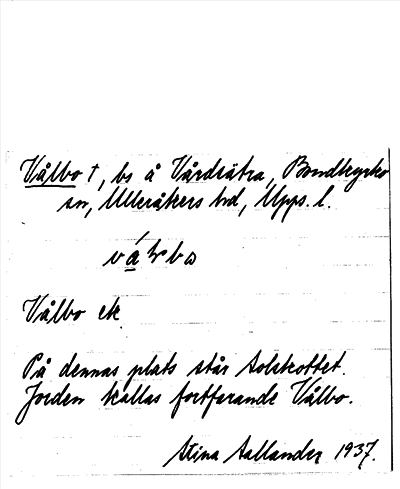 Vålbo †, bs å Vårdsätra, Bondkyrko
sn, Ulleråkers hd, Upps. l.
Vålbo ek
På dennas plats står Solskottet.
Jorden kallas fortfarande Vålbo.
Stina Sallander 1937.